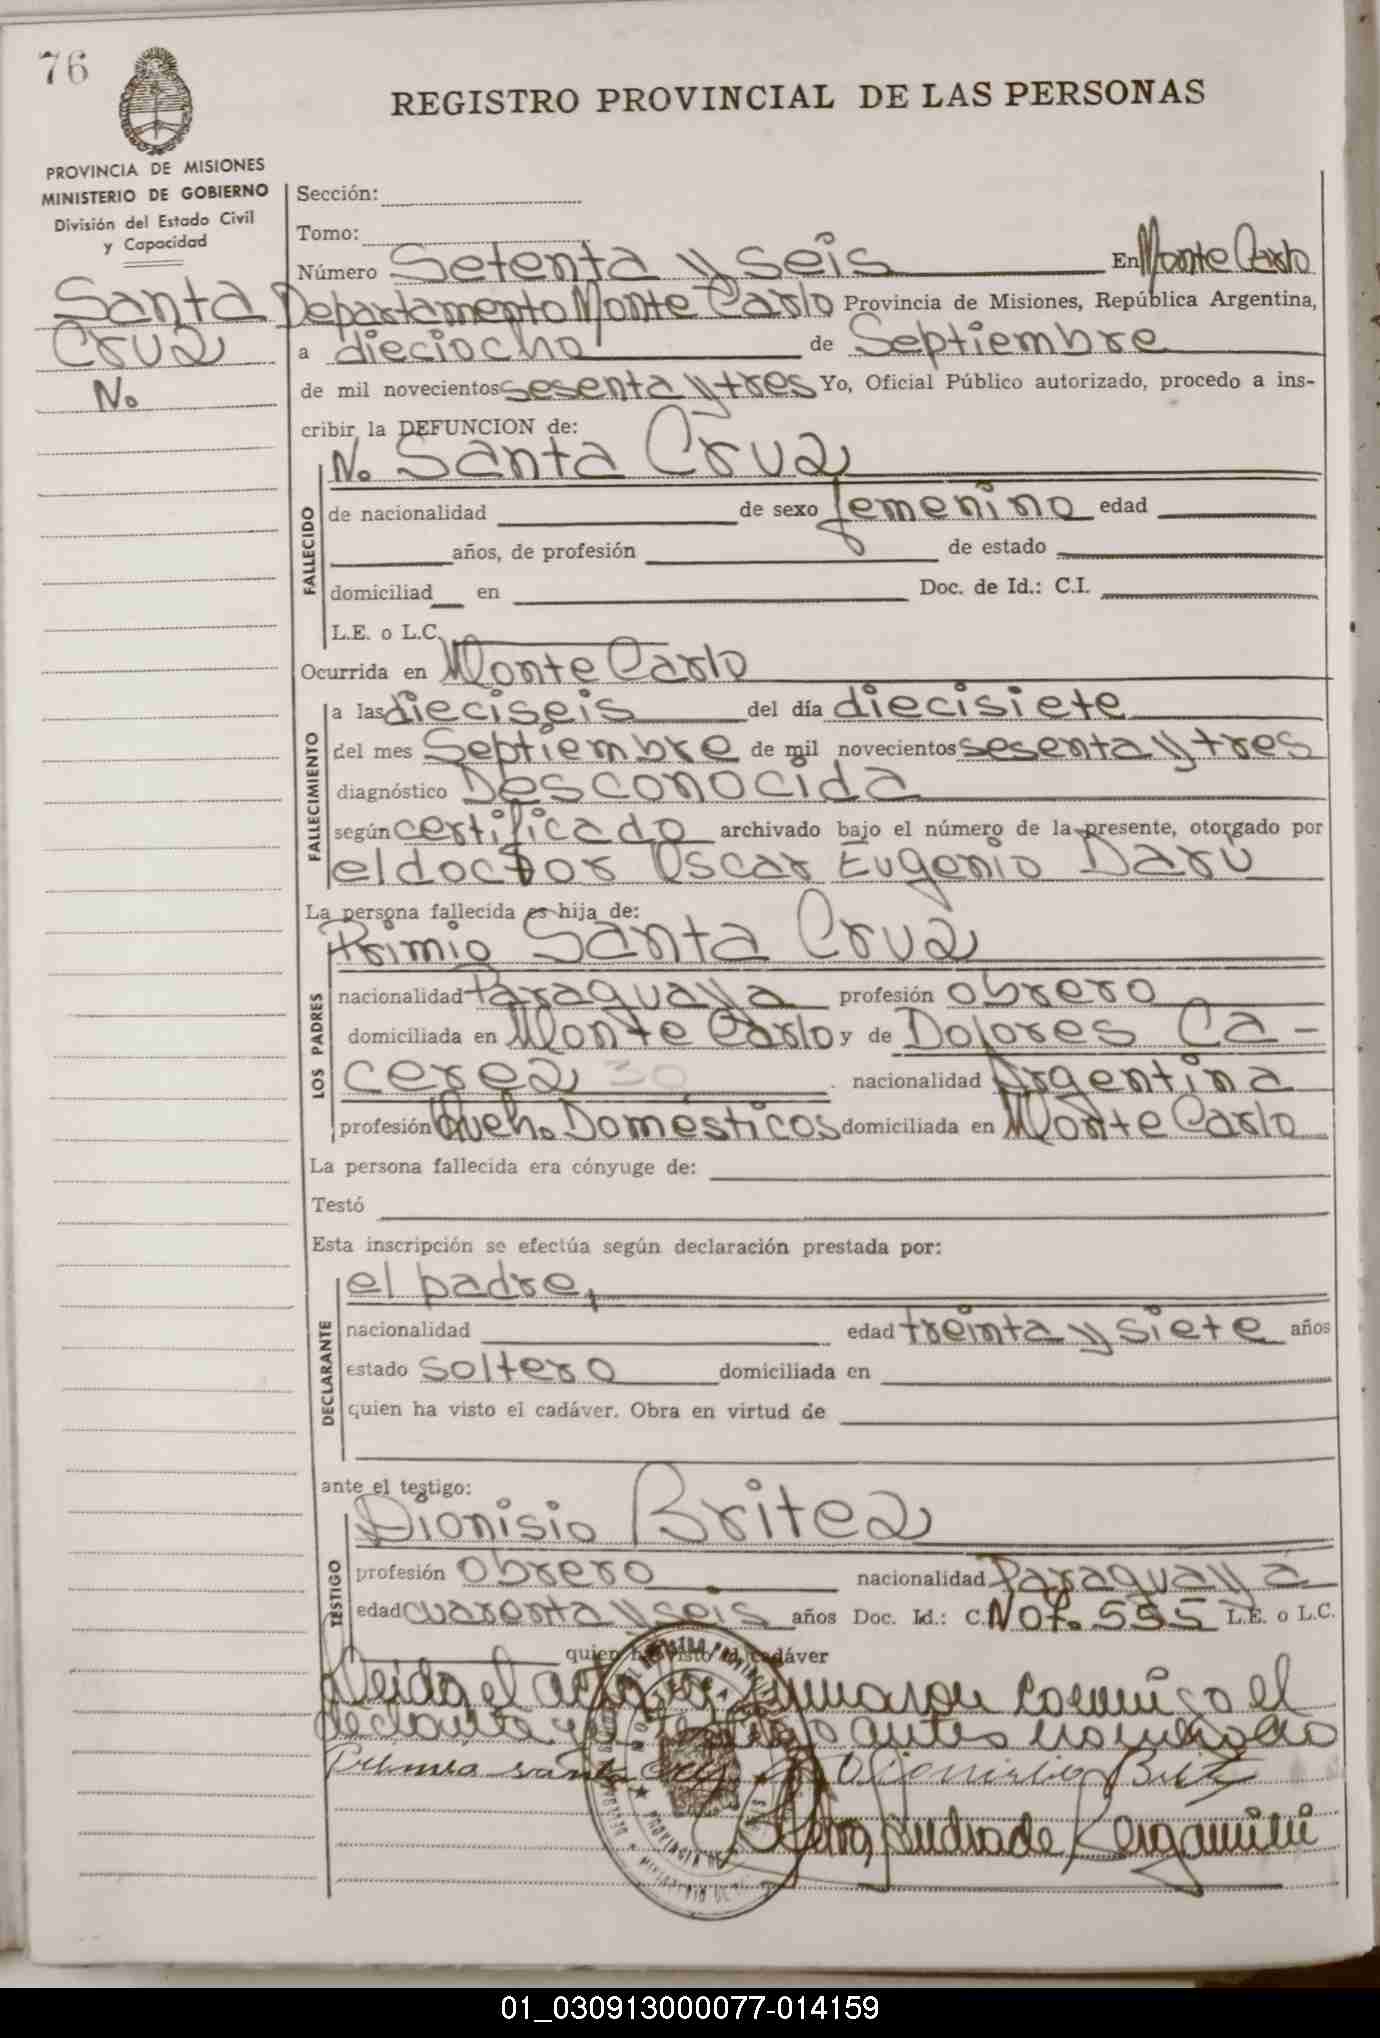 76
REGISTRO PROVINCIAL DE LAS PERSONAS
PROVINCIA DE MISIONES
MINISTERIO DE GOBIERNO
División del Estado Civil
y Capacidad
Santa
Cruz
N.
Sección:
Tomo:
Número Setenta y seis En Monte Carlo
Departamento Monte Carlo Provincia de Misiones, República Argentina,
a dieciocho de Septiembre
de mil novecientos sesenta y tres Yo, Oficial Público autorizado, procedo a ins-
cribir la DEFUNCION de:
N. Santa Cruz
FALLECIDO
de nacionalidad de sexo femenino edad
años, de profesión de estado
domiciliad en Doc. de Id.: C.I.
L.E. o L.C.
Ocurrida en Monte Carlo
FALLECIMIENTO
a las dieciseis del día diecisiete
del mes Septiembre de mil novecientos sesenta y tres
diagnóstico Desconocida
según certificado archivado bajo el número de la presente, otorgado por
el doctor Oscar Eugenio Darú
La persona fallecida es hija de:
Primio Santa Cruz
LOS PADRES
nacionalidad Paraguaya profesión obrero
domiciliada en Monte Carlo y de Dolores Ca-
cerez 30 nacionalidad Argentina
profesión Queh. Domésticos domiciliada en Monte Carlo
La persona fallecida era cónyuge de:
Testó
Esta inscripción se efectúa según declaración prestada por:
el padre,
DECLARANTE
nacionalidad edad treinta y siete años
estado soltero domiciliada en
quien ha visto el cadáver. Obra en virtud de
ante el testigo:
Dionisio Britez
TESTIGO
profesión obrero nacionalidad Paraguaya
edad cuarenta y seis años Doc. Id.: C. Not. 555 L.E. o L.C.
quien ha visto el cadáver
Leida el acta la firmaron conmigo el
declarante y el testigo antes nombrado
Primio santa cruz Dionisio Britez
Bergamini
01_030913000077-014159